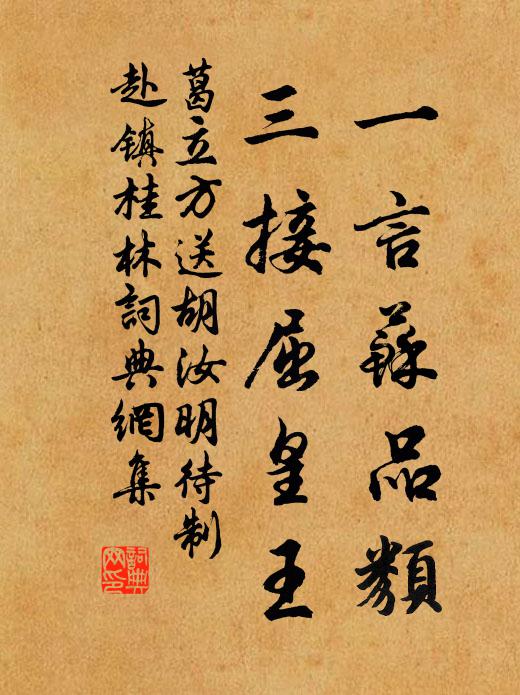 一言蘇品類
三接屈皇王
葛立方送胡汝明待制
赴鎮桂林詞典網集
詞典網印